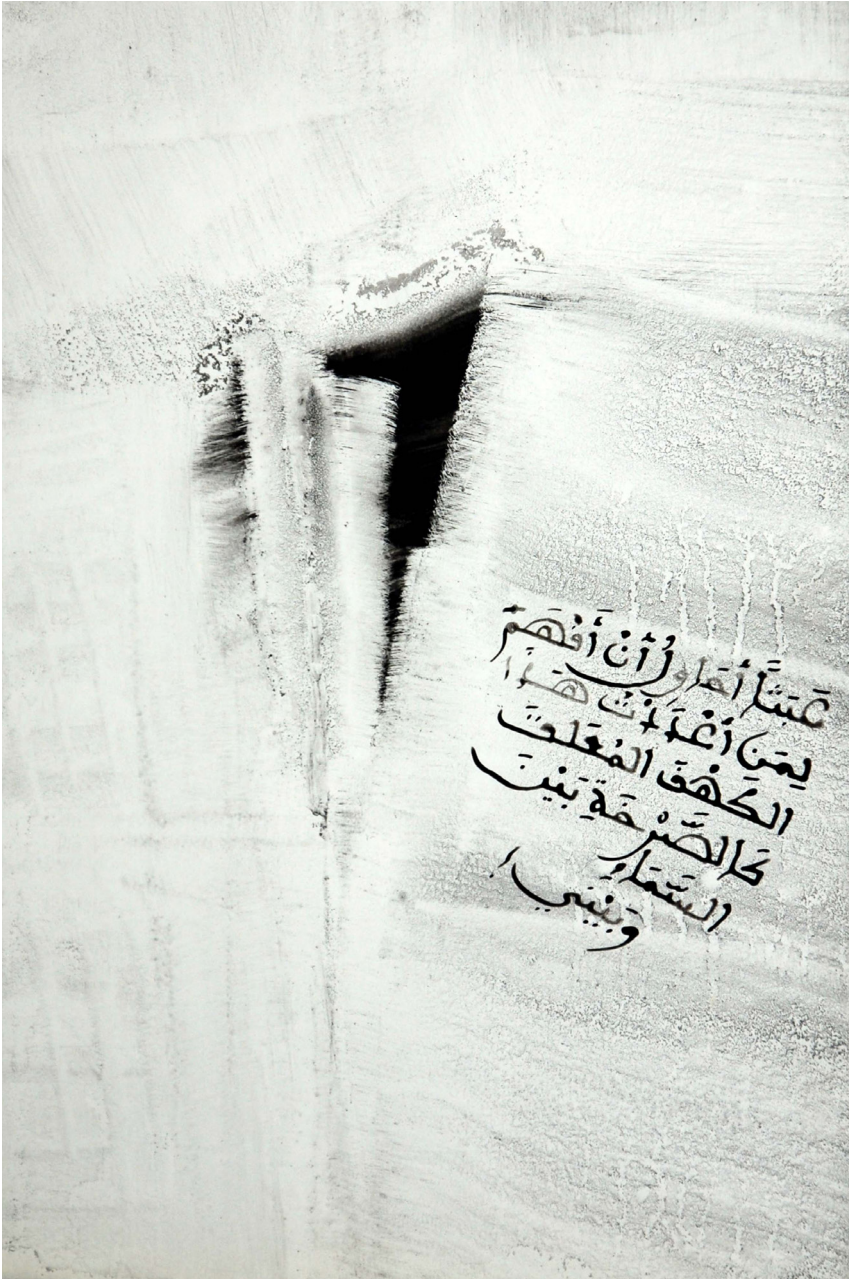 عَبَثًا أُحَاوِلُ أَنْ أَفْهَمَ
لِمَنْ أَعْدَدْتُ هَذَا
الكَهْفَ المُعَلَّقَ
كَالصَّرْخَةِ بَيْنَ
السَّمَاءِ
وَبَيْنِي!